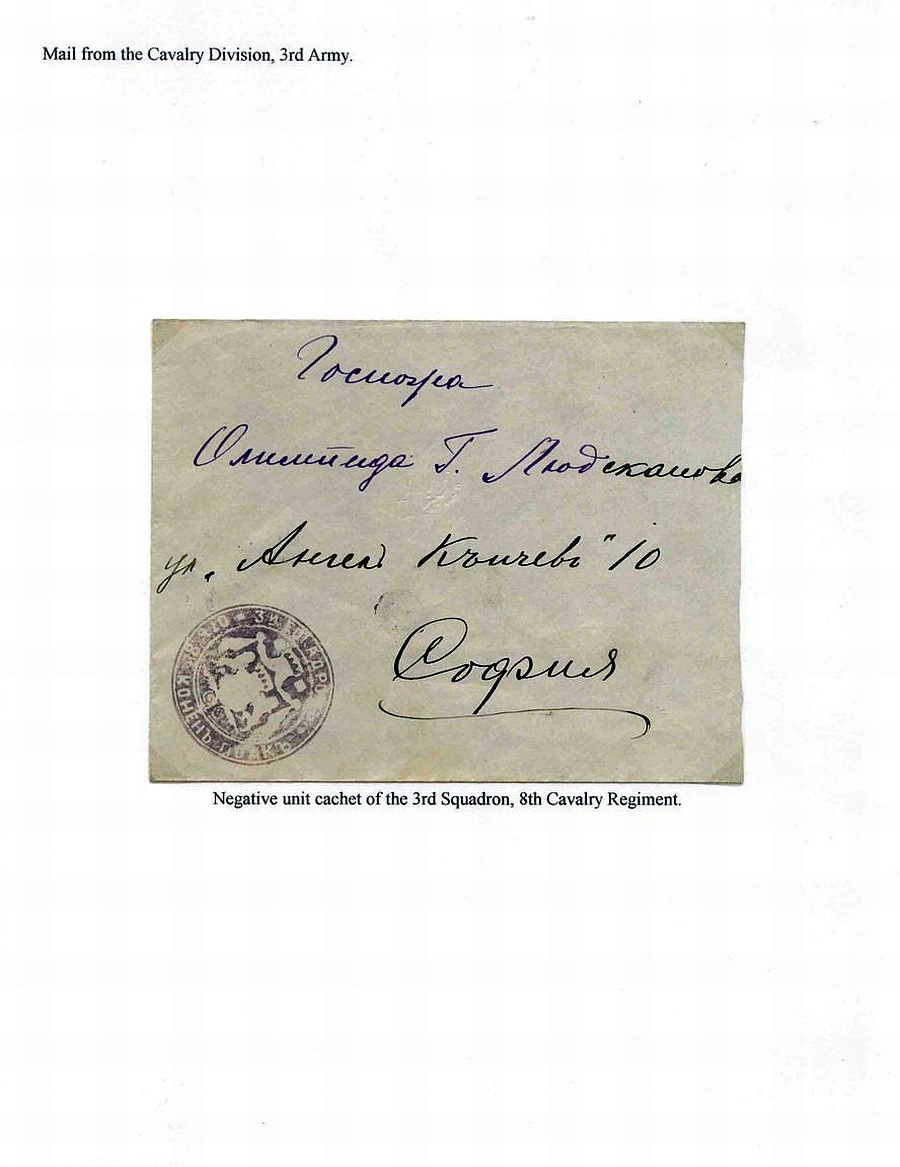 Mail from the Cavalry Division, 3rd Army.
Госпожа
Олимпида Г. Людсканова
ул. „Ангелъ Кънчевъ" 10
София
Negative unit cachet of the 3rd Squadron, 8th Cavalry Regiment.